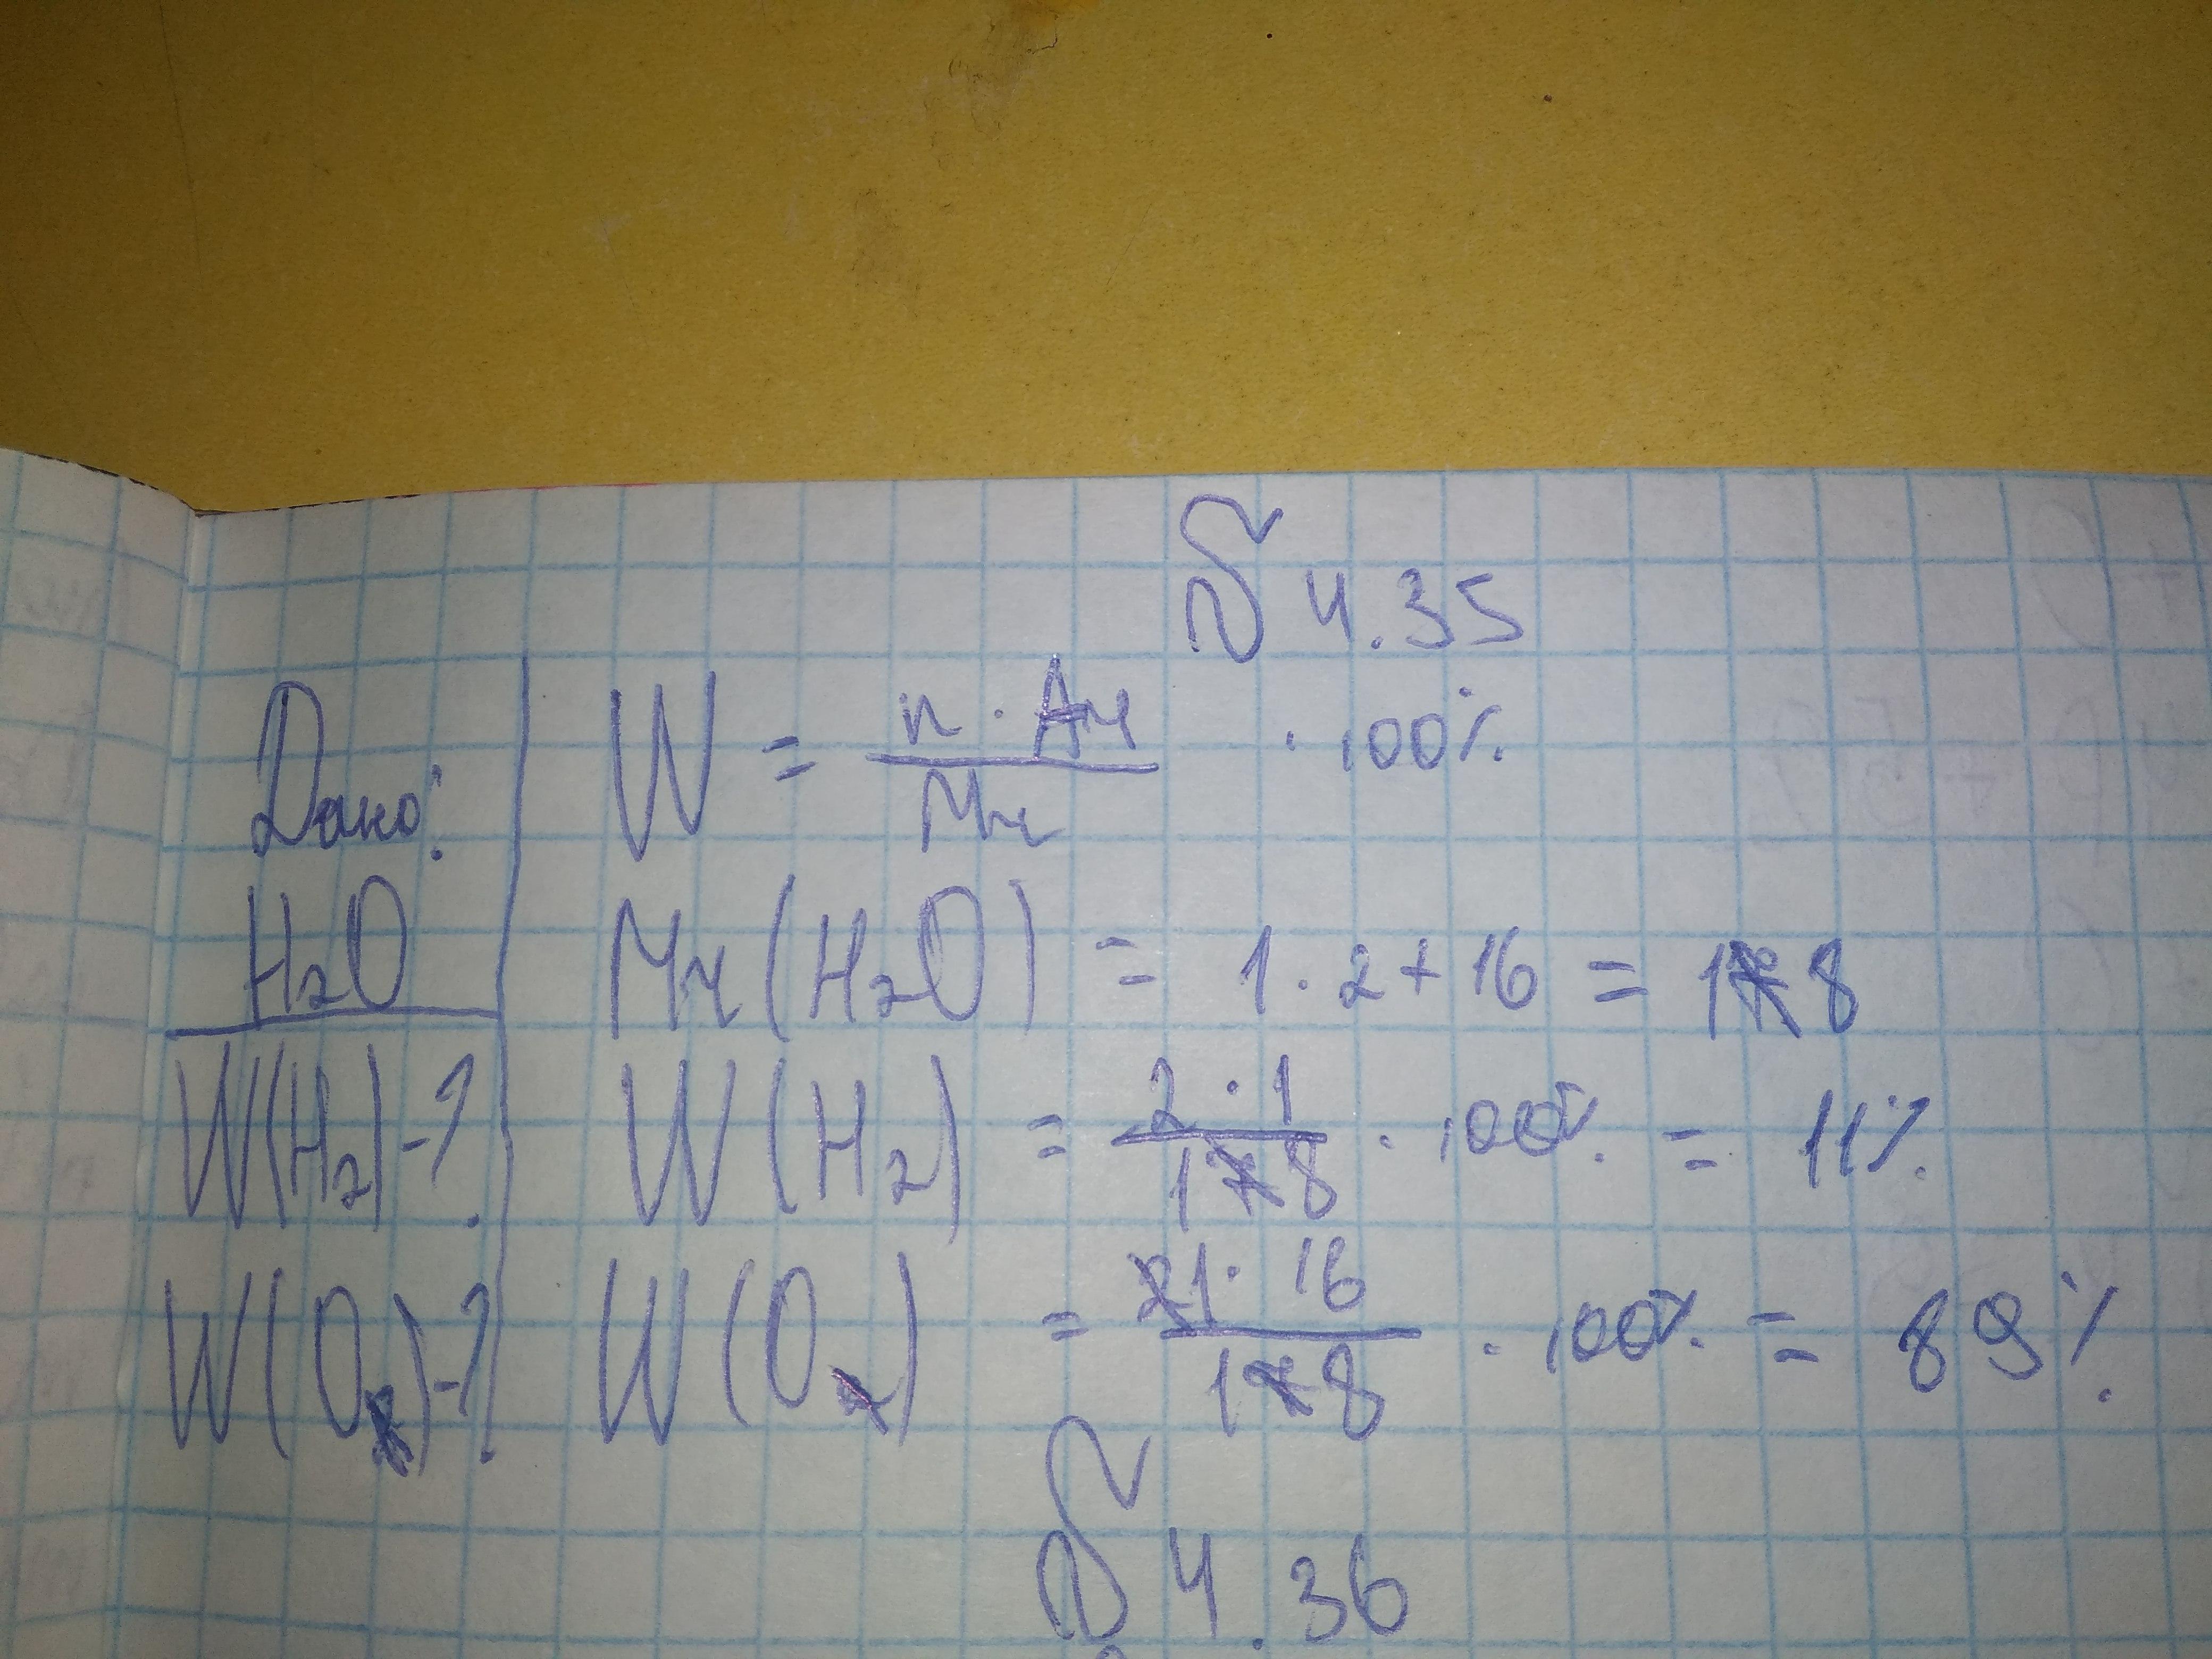 № 4.35
Дано:
H₂O
W(H₂)-?
W(O)-?
W = n · Ar / Mr · 100%
Mr(H₂O) = 1 · 2 + 16 = 18
W(H₂) = 2 · 1 / 18 · 100% = 11%
W(O) = 1 · 16 / 18 · 100% = 89%
№ 4.36